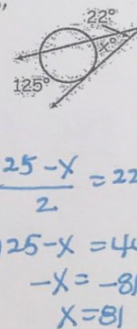 22°
x°
125°
25-x/2 = 22
25-x = 44
-x = -81
x = 81